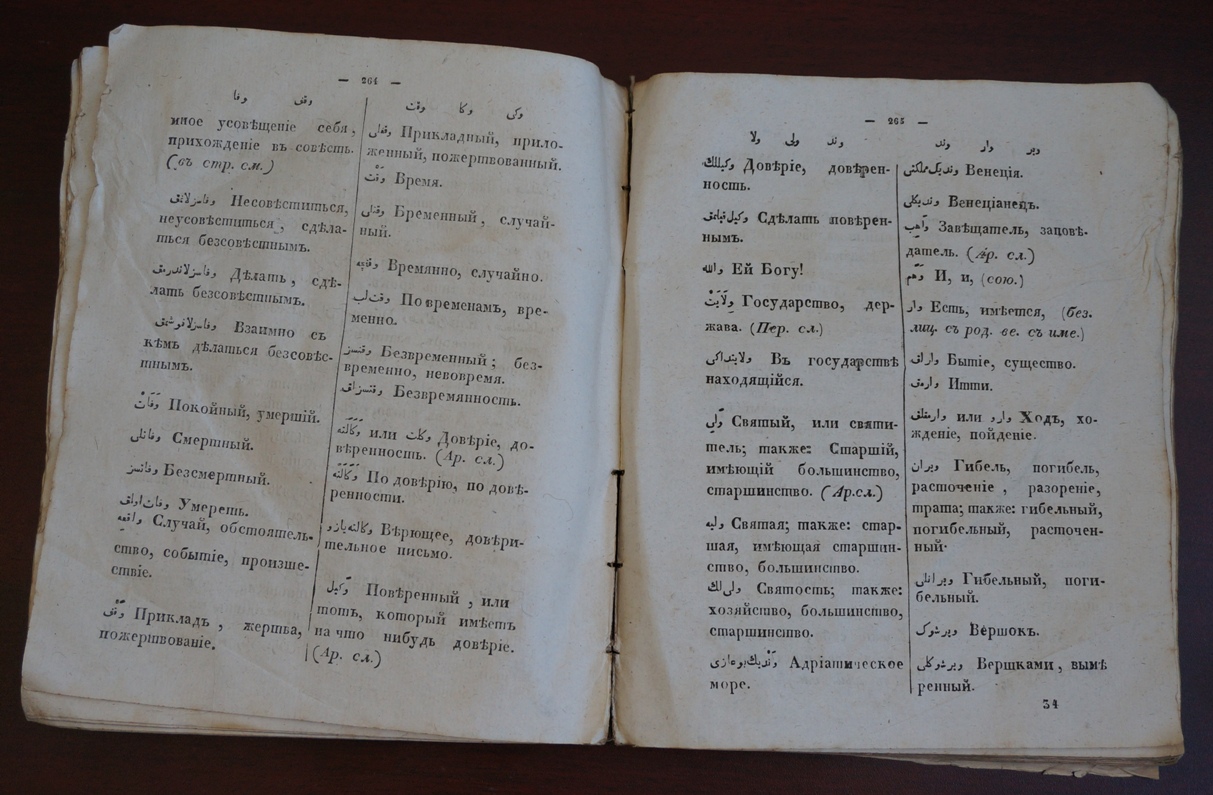 — 264 —
وفا وقى
иное усовѣщеніе себя,
прихожденіе въ совѣсть.
(въ стр. см.)
Несовѣститься,
неусовѣститься, сдѣла-
ться безсовѣстнымъ.
Дѣлать, сдѣ-
лать безсовѣстнымъ.
Взаимно съ
кѣмъ дѣлаться безсовѣс-
тнымъ.
وفات Покойный, умершій.
وفاتلى Смертный.
وفاتسز Безсмертный.
وفات اولمق Умереть.
واقعه Случай, обстоятель-
ство, событіе, произше-
ствіе.
وقف Прикладъ, жертва,
пожертвованіе.
وقت وكا وكى
وقفلى Прикладный, прило-
женный, пожертвованный.
وقت Время.
وقتلى Временный, случай-
ный.
وقتيه Времянно, случайно.
По временамъ, вре-
менно.
وقتسز Безвременный; без-
временно, невовремя.
وقتسزلق Безвремянность.
وكالته или وكالت Довѣріе, до-
вѣренность. (Ар. сл.)
وكالته По довѣрію, по довѣ-
ренности.
Вѣрющее, довѣри-
тельное письмо.
وكيل Повѣренный, или
тотъ, который имѣетъ
на что нибудь довѣріе.
(Ар. сл.)
— 265 —
ولا ولى وند
وكيللك Довѣріе, довѣрен-
ность.
Сдѣлать повѣрен-
нымъ.
والله Ей Богу!
ولايت Государство, дер-
жава. (Пер. сл.)
ولايتداكى Въ государствѣ
находящійся.
ولى Святый, или святи-
тель; также: Старшій,
имѣющій большинство,
старшинство. (Ар.сл.)
وليه Святая; также: стар-
шая, имѣющая старшин-
ство, большинство.
ولى لك Святость; также:
хозяйство, большинство,
старшинство.
Адріатическое
море.
وند وار وير
ونديك مملكتى Венеція.
ونديكلى Венеціанецъ.
واهب Завѣщатель, заповѣ-
датель. (Ар. сл.)
وهم И, и, (сою.)
وار Есть, имѣется, (без.
лиц. съ род. ве. съ име.)
وارلق Бытіе, существо.
وارمق Итти.
или وارو Ходъ, хо-
жденіе, пойденіе.
ويران Гибель, погибель,
расточеніе, разореніе,
трата; также: гибельный,
погибельный, расточен-
ный.
ويرانلى Гибельный, поги-
бельный.
ويرشوك Вершокъ.
ويرشوكلى Вершками, вымѣ
ренный.
34